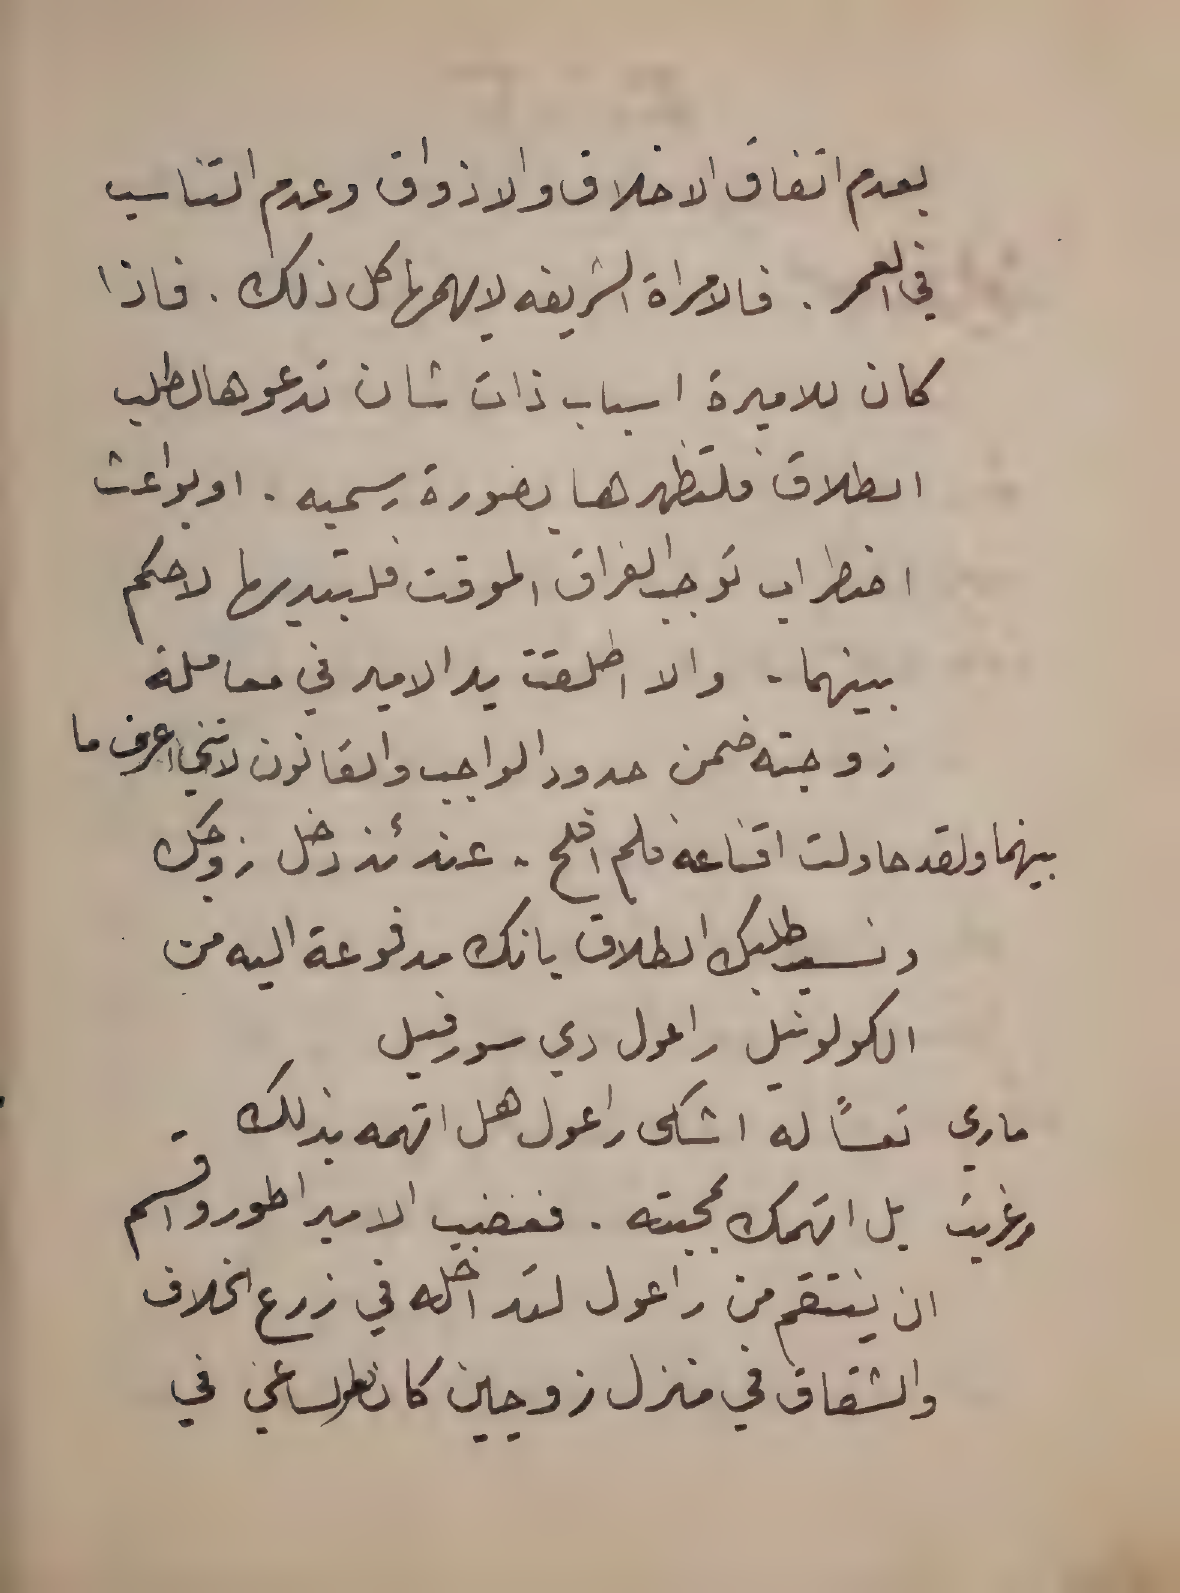 بعدم اتفاق الاخلاق والاذواق وعدم التناسب
في العمر . فالامراة الشريفه لايهمها كل ذلك . فاذا
كان للاميرة اسباب ذات شان تدعوها لطلب
الطلاق فلتظهرها بصورة رسميه . او بواعث
اضطراب توجب الفراق الموقت فلتبديها لاحكم
بينهما . والا اطلقت يد الامير في معاملة
زوجته ضمن حدود الواجب والقانون لانني اعرف ما
بينهما ولقد حاولت اقناعه فلم افلح . عندئذ دخل زوجك
ونسب طلبك الطلاق بانك مدفوعة اليه من
الكولونيل راعول دي سورفيل
ماري تعسًا له اشكى راعول هل اتهمه بذلك
مرغريت بل اتهمك بمحبته . فغضب الامبراطور واقسم
ان ينتقم من راعول لتداخله في زرع الخلاف
والشقاق في منزل زوجين كانا في